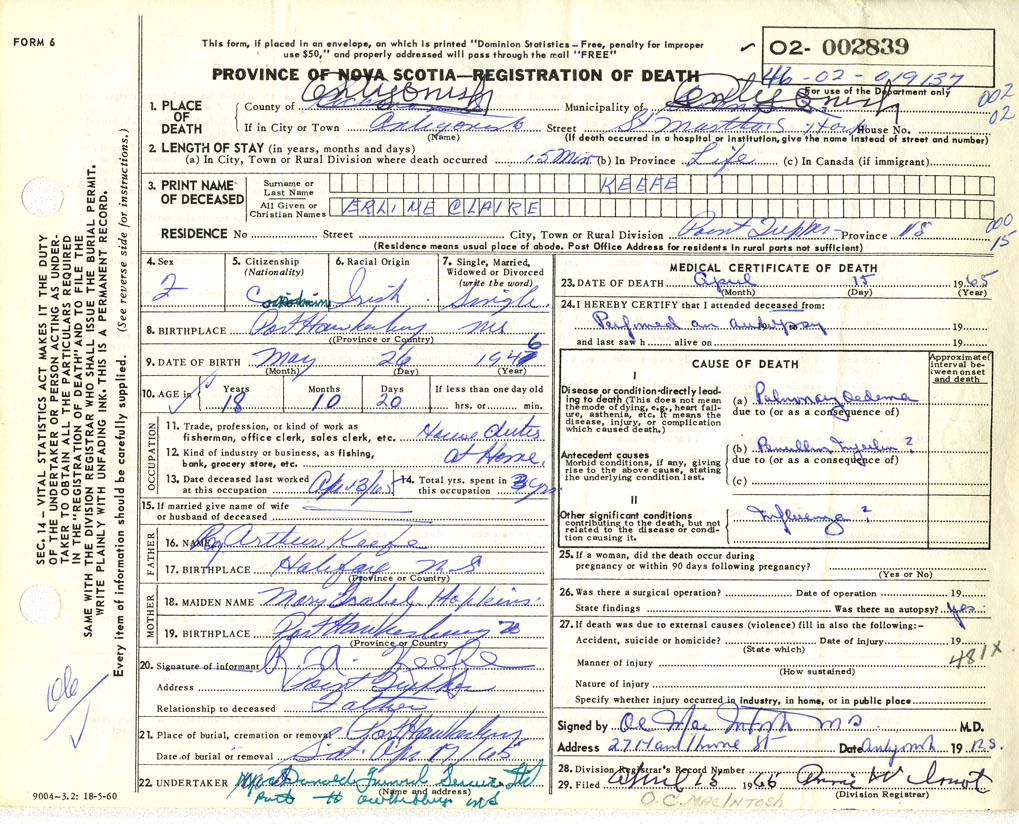 FORM 6
This form, if placed in an envelope, on which is printed "Dominion Statistics—Free, penalty for improper
use $50," and properly addressed will pass through the mail "FREE"
02- 002839
46-02-019137
For use of the Department only
002
02
PROVINCE OF NOVA SCOTIA—REGISTRATION OF DEATH
1. PLACE OF DEATH
County of Antigonish Municipality of Antigonish
If in City or Town Antigonish Street St Martha's Hosp House No.
(Name) (If death occurred in a hospital or institution, give the name instead of street and number)
2. LENGTH OF STAY (in years, months and days)
(a) In City, Town or Rural Division where death occurred 5 Min (b) In Province Life (c) In Canada (if immigrant)
3. PRINT NAME OF DECEASED
Surname or Last Name KEEFE
All Given or Christian Names ERLINE CLAIRE
RESIDENCE No Street City, Town or Rural Division Point Tupper Province NS
000
15
(Residence means usual place of abode. Post Office Address for residents in rural parts not sufficient)
4. Sex 2
5. Citizenship (Nationality) Canadian
6. Racial Origin Irish
7. Single, Married, Widowed or Divorced (write the word) Single
8. BIRTHPLACE Port Hawkesbury NS
(Province or Country)
9. DATE OF BIRTH May 26 1946
(Month) (Day) (Year)
10. AGE in Years 18 Months 10 Days 20 If less than one day old hrs. or min.
OCCUPATION
11. Trade, profession, or kind of work as
fisherman, office clerk, sales clerk, etc. House duties
12. Kind of industry or business, as fishing,
bank, grocery store, etc. at Home
13. Date deceased last worked at this occupation Ap 13/65
14. Total yrs. spent in this occupation 3 yrs
15. If married give name of wife
or husband of deceased
FATHER
16. NAME Arthur Keefe
17. BIRTHPLACE Halifax N S
(Province or Country)
MOTHER
18. MAIDEN NAME Mary Isabel Hopkins
19. BIRTHPLACE Port Hawkesbury NS
(Province or Country)
20. Signature of informant R. A. Keefe
Address Point Tupper
Relationship to deceased Father
21. Place of burial, cremation or removal Port Hawkesbury
Date of burial or removal Sat. Apr 17/65
22. UNDERTAKER Funeral Service Ltd
(Name and address)
Port Hawkesbury NS
MEDICAL CERTIFICATE OF DEATH
23. DATE OF DEATH April 15 1965
(Month) (Day) (Year)
24. I HEREBY CERTIFY that I attended deceased from:
Performed an autopsy 19
and last saw h alive on 19
CAUSE OF DEATH
Approximate interval between onset and death
I
Disease or condition directly leading to death (This does not mean the mode of dying, e.g., heart failure, asthenia, etc. It means the disease, injury, or complication which caused death.)
(a) Pulmonary Oedema
due to (or as a consequence of)
Antecedent causes
Morbid conditions, if any, giving rise to the above cause, stating the underlying condition last.
(b) Penicillin Injection ?
due to (or as a consequence of)
(c)
II
Other significant conditions
contributing to the death, but not related to the disease or condition causing it.
Influenza ?
25. If a woman, did the death occur during
pregnancy or within 90 days following pregnancy?
(Yes or No)
26. Was there a surgical operation? Date of operation 19
State findings Was there an autopsy? yes
27. If death was due to external causes (violence) fill in also the following:—
Accident, suicide or homicide? Date of injury 19
(State which)
481X
Manner of injury
(How sustained)
Nature of injury
Specify whether injury occurred in industry, in home, or in public place
Signed by O C MacIntosh M.D.
Address 27 Hawthorne St Date Antigonish 19 N.S.
28. Division Registrar's Record Number
29. Filed April 15 1965
(Division Registrar)
O.C. MACINTOSH
9004-3.2: 18-5-60
SEC. 14—VITAL STATISTICS ACT MAKES IT THE DUTY
OF THE UNDERTAKER OR PERSON ACTING AS UNDER-
TAKER TO OBTAIN ALL THE PARTICULARS REQUIRED
IN THE "REGISTRATION OF DEATH" AND TO FILE THE
SAME WITH THE DIVISION REGISTRAR WHO SHALL ISSUE THE BURIAL PERMIT.
WRITE PLAINLY WITH UNFADING INK. THIS IS A PERMANENT RECORD.
Every item of information should be carefully supplied. (See reverse side for instructions.)